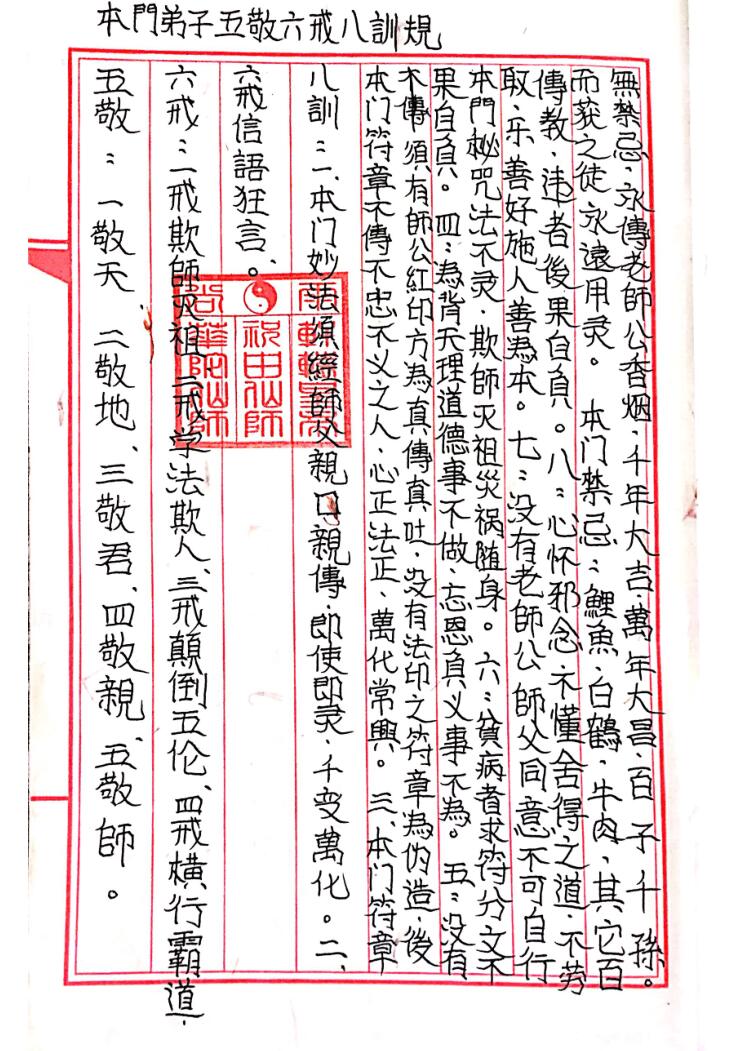 本門弟子五敬六戒八訓規
五敬：一敬天 二敬地、三敬君、四敬親、五敬師。
六戒：一戒欺師灭祖、二戒学法欺人、三戒顛倒五伦、四戒橫行霸道、
六戒信語狂言。
八訓：一、本门妙法須經師父親口親傳、即使即灵、千变萬化。二、
本门符章不傳不忠不义之人、心正法正、萬代常興。三、本门符章
不傳須有師公紅印方為真傳真吐、没有法印之符章為伪造、後
果自負。四：為背天理道德事不做、忘恩負义事不為。五：没有
本門秘咒法不灵、欺師灭祖災祸随身。六：貧病者求符分文不
取、乐善好施人善為本。七：没有老師公師父同意不可自行
傳教、违者後果自負。八：心怀邪念不懂舍得之道、不劳
而获之徒永遠用灵。 本门禁忌：鯉魚、白鶴、牛肉、其它百
無禁忌、永傳老師公香烟、千年大吉、萬年大昌、百子千孫。
祝由仙師